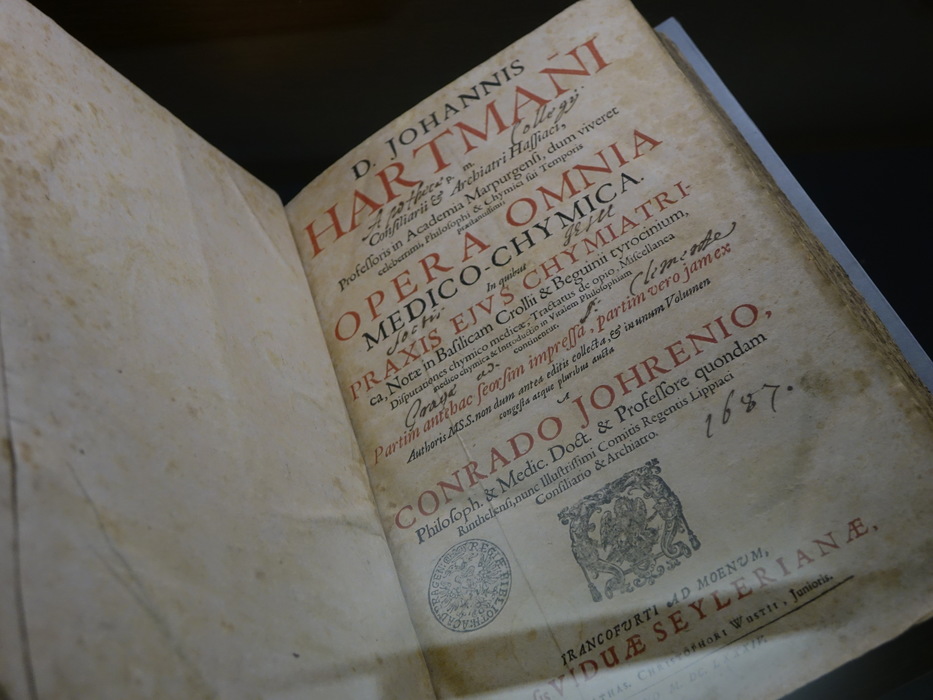 D. JOHANNIS
HARTMAÑI
Collegÿ
Consiliarii & Archiatri Haſſiaci,
Profeſſoris in Academia Marpurgenſi, dum viveret
celeberrimi, Philoſophi & Chymici ſui Temporis
præſtantiſſimi
OPERA OMNIA
MEDICO-CHYMICA.
In quibus
PRAXIS EJUS CHYMIATRI-
ca, Notæ in Baſilicam Crollii & Beguinii tyrocinium,
Diſputationes chymico medicæ, Tractatus de opio, Miſcellanea
medico-chymica & Introductio in Vitalem Philoſophiam
continentur,
S. Clementē
Partim antehac ſeorſim impreſſa, partim vero jam ex
Authoris MSS. non dum antea editis collecta, & in unum Volumen
congeſta atque pluribus aucta
à
CONRADO JOHRENIO,
Philoſoph. & Medic. Doct. & Profeſſore quondam
Rinthelenſi, nunc Illuſtriſſimi Comitis Regentis Lippiaci
Conſiliario & Archiatro.
1687.
FRANCOFURTI AD MOENUM,
VIDUÆ SEYLERIANÆ,
CHRISTOPHORI WUSTII, Junioris.